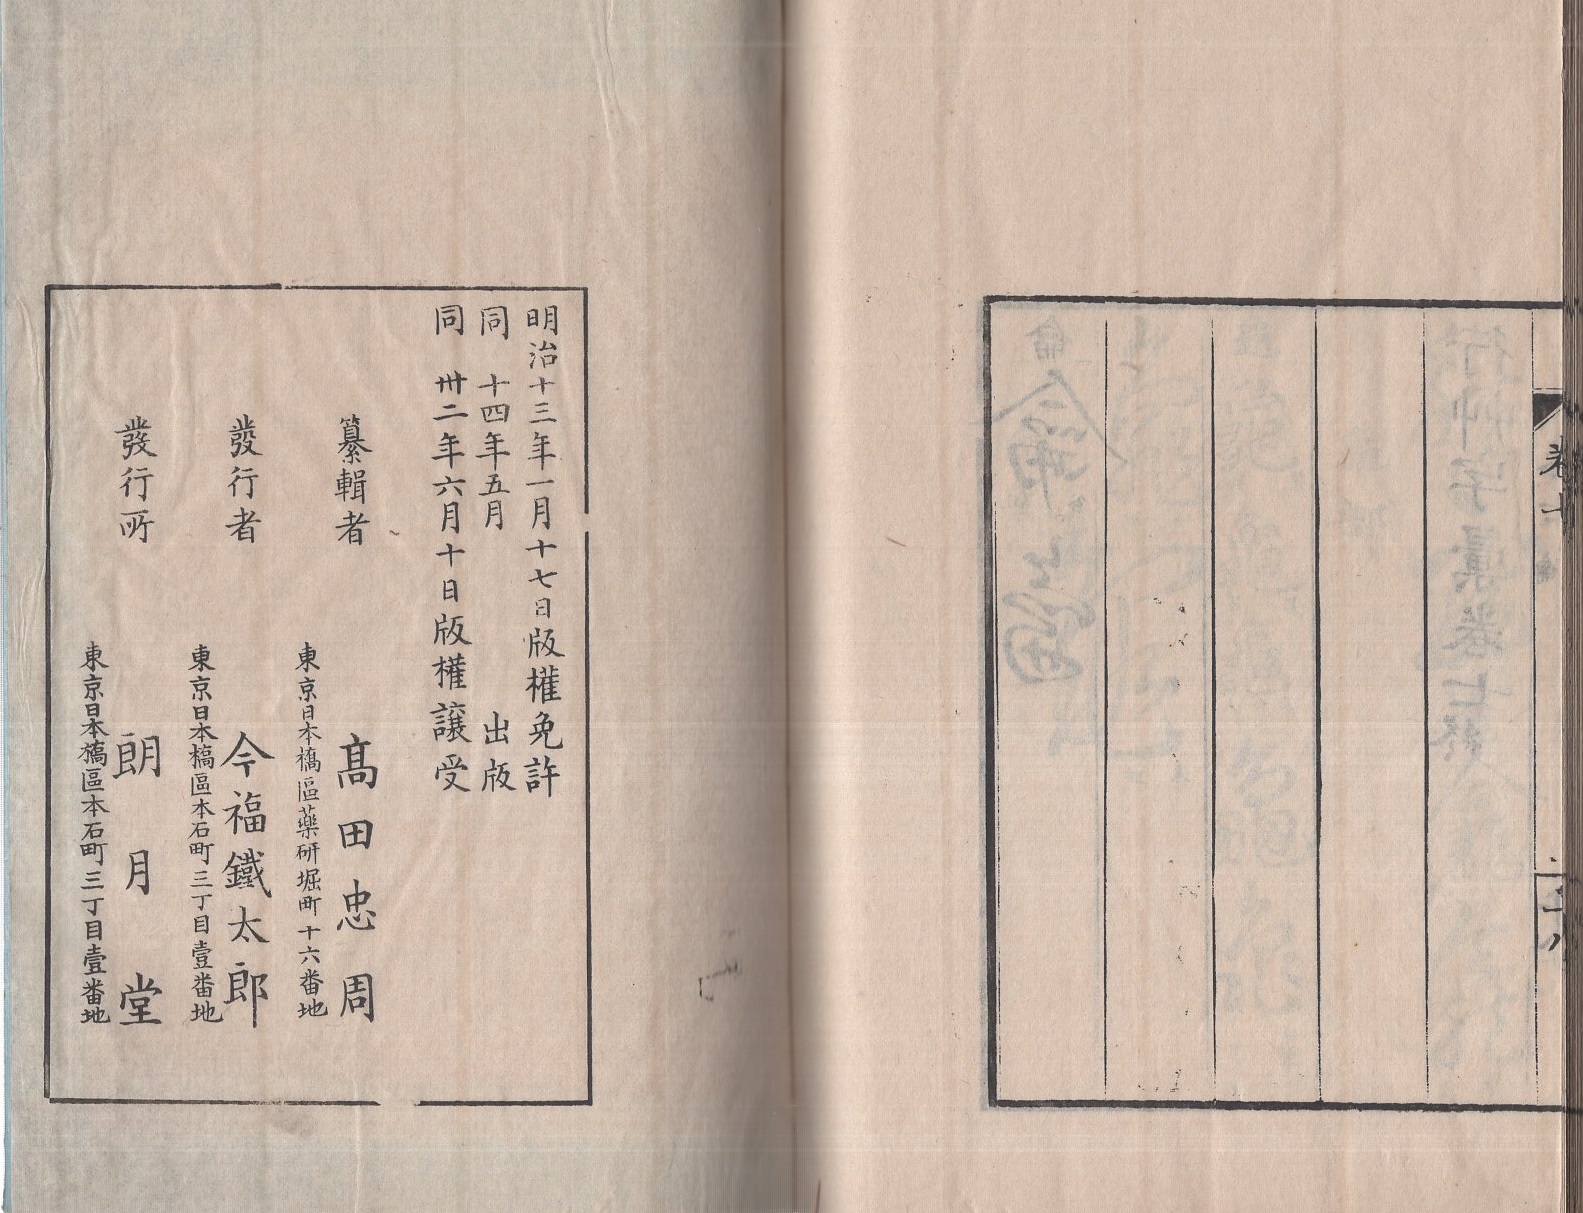 卷七
二十八
明治十三年一月十七日版權免許
同 十四年五月 出版
同 卅二年六月十日版權讓受
纂輯者
東京日本橋區藥研堀町十六番地
髙田忠周
發行者
東京日本橋區本石町三丁目壹番地
今福鐵太郎
發行所
東京日本橋區本石町三丁目壹番地
朗月堂